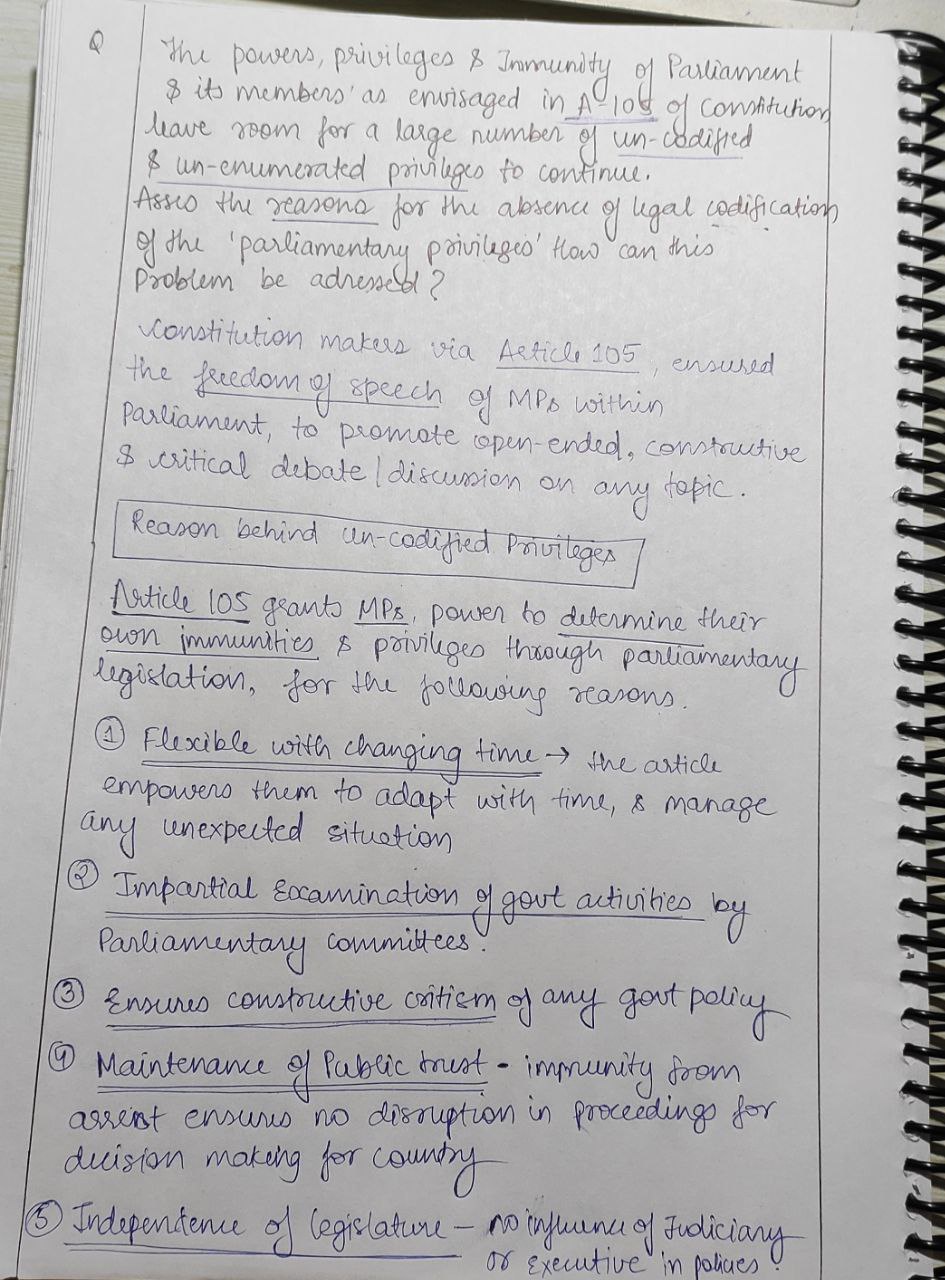 Q
The powers, privileges & Immunity of Parliament
& its members' as envisaged in A-105 of constitution
leave room for a large number of un-codified
& un-enumerated privileges to continue.
Assess the reasons for the absence of legal codification
of the 'parliamentary privileges' How can this
Problem be adressed?
Constitution makers via Article 105, ensured
the freedom of speech of MPs within
Parliament, to promote open-ended, constructive
& critical debate/discussion on any topic.
Reason behind un-codified Privileges
Article 105 grants MPs, power to determine their
own immunities & privileges through parliamentary
legislation, for the following reasons.
① Flexible with changing time → the article
empowers them to adapt with time, & manage
any unexpected situation
② Impartial Examination of govt activities by
Parliamentary committees.
③ Ensures constructive critism of any govt policy
④ Maintenance of Public trust - immunity from
arrest ensures no disruption in proceedings for
decision making for country
⑤ Independence of legislature - no influence of Judiciary
or executive in policies.